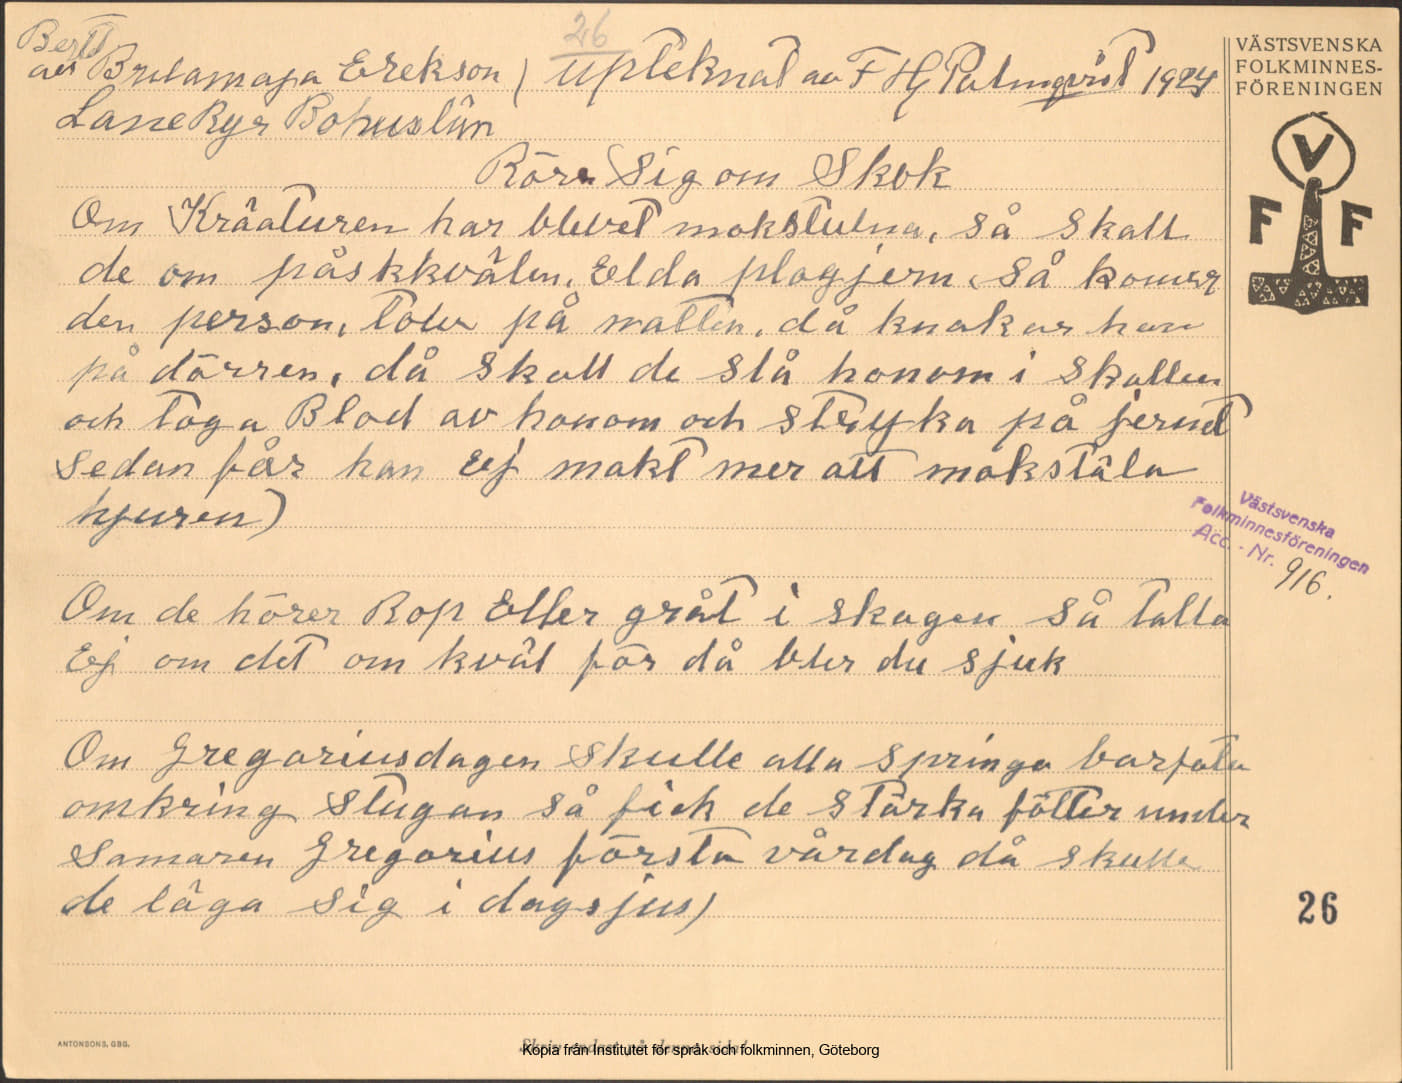 26
Bertt
av Britamaja Erekson ) upteknat av F Hj Palmqvist 1924
LaneRyr Bohuslän
Röra Sig om Skok
Om Kräaturen har blevet mokstulna, så skall
de om påskkvälen, Elda plogjern, så komer
den person, toler på natten, då knakar han
på dörren, då skall de slå honom i skallen
och taga Blod av honom och stryka på jernet
sedan får han Ej makt mer att mokstäla
hjuren)
Om de hörer Rop Eller gråt i skogen så talla
Ej om det om kväl för då bler du sjuk
Om Gregoriusdagen skulle alla springa barfota
omkring stugan så fick de stärka fötter under
somaren Gregorius första vårdag då skulle
de läga sig i dagsjus)
VÄSTSVENSKA
FOLKMINNES-
FÖRENINGEN
V
F F
Västsvenska
Folkminnesföreningen
Acc. - Nr. 916.
26
ANTONSONS, GBG.
Skriv endast på denna sida!
Kopia från Institutet för språk och folkminnen, Göteborg